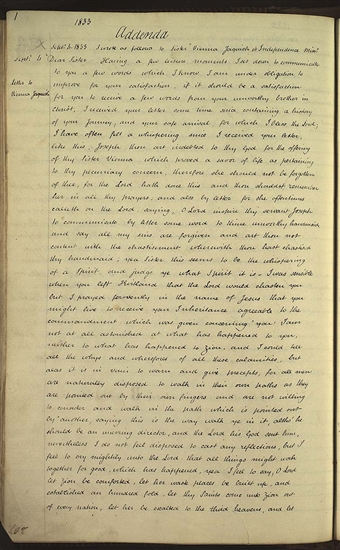 1
1833
Addenda
Sept. 4. 1833 I wrote as follows to Sister Vienna Jaques at Independence
Sept. 4 Dear Sister. Having a few leisure moments I sat down to communicate
letter to to you a few words which I know I am under obligation to
Vienna Jaques improve for your satisfaction, if it should be a satisfaction
for you to receive a few words from your unworthy brother in
Christ, I received your letter some time since containing a history
of your journey, and your safe arrival for which I bless the Lord;
I have often felt a whispering since I received your letter,
like this; Joseph thou art indebted to thy God for the offering
of thy Sister Vienna which proved a savor of life as pertaining
to thy pecuniary concern, therefore she should not be forgotten
of thee, for the Lord hath done this and thou shouldst remember
her in all thy prayers, and also by letter for she oftentimes
calleth on the Lord saying, O Lord inspire thy servant Joseph
to communicate by letter some word to thine unworthy handmaid
and say all my sins are forgiven and art thou not
content with the chastisement wherewith thou hast chastised
thy handmaid; yea Sister this seems to be the whispering
of a Spirit and judge ye what Spirit it is. I was sensible
when you left Kirtland that the Lord would chasten you
but I prayed fervently in the name of Jesus that you
might live to receive your Inheritance agreeable to the
commandment which was given concerning you. I am
not at all astonished at what has happened to you,
neither to what has happened to Zion, and I could tell
all the whys and wherefores of all these calamities, but
alas it is in vain to warn and give precepts, for all men
are naturally disposed to walk in their own paths as they
are pointed out by their own fingers and are not willing
to consider and walk in the path which is pointed out
by another, saying this is the way walk ye in it, altho he
should be an unerring director, and the Lord his God sent him,
nevertheless I do not feel disposed to cast any reflections, but I
feel to cry mightily unto the Lord that all things might work
together for good, which has happened, yea I feel to say, O Lord
let Zion be comforted, let her waste places be built up, and
established an hundred fold, let thy Saints come unto Zion out
of every nation, let her be exalted to the third heavens, and let